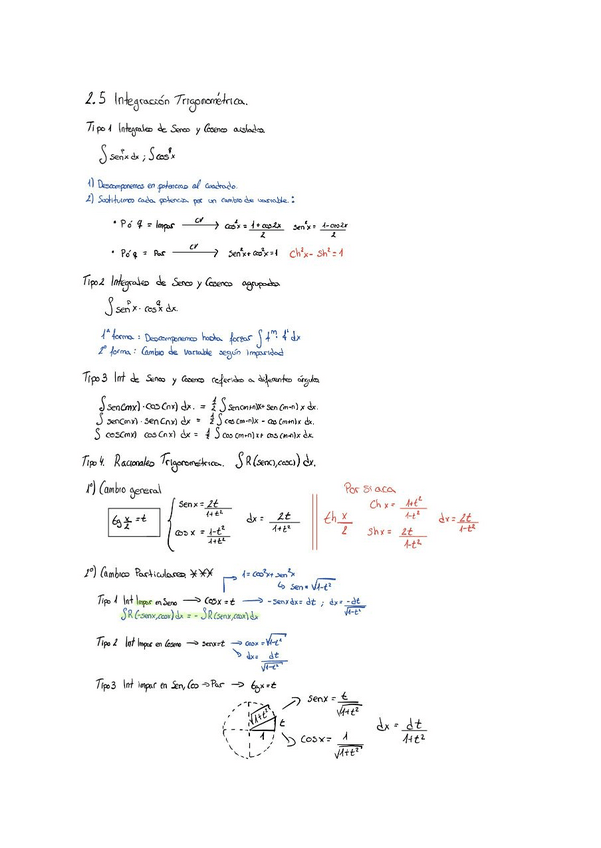 2.5 Integración Trigonométrica.
Tipo 1 Integrales de Seno y Coseno aislados
∫ senᵖx dx ; ∫ cos^q x
1) Descomponemos en potencias al cuadrado.
2) Sustituimos cada potencia por un cambio de variable :
• P ó q = Impar —CV→ cos²x = 1+cos2x/2 sen²x = 1-cos2x/2
• P ó q = Par —CV→ sen²x+cos²x=1 Ch²x - Sh² = 1
Tipo 2 Integrales de Seno y Coseno agrupados
∫ senᵖx · cos^q x dx.
1ª forma : Descomponemos hasta forzar ∫ fᵐ · f' dx
2ª forma : Cambio de variable según imparidad
Tipo 3 Int de Seno y Coseno referidos a diferentes ángulos
∫ sen(mx) · cos(nx) dx. = 1/2 ∫ sen(m+n)x + sen(m-n) x dx.
∫ sen(mx) · sen(nx) dx = 1/2 ∫ cos(m-n)x - cos(m+n)x dx.
∫ cos(mx) cos(nx) dx = 1/2 ∫ cos(m+n)x + cos(m-n)x dx
Tipo 4. Racionales Trigonométricas. ∫ R(senx, cosx) dx.
1º) Cambio general
tg x/2 = t
sen x = 2t/1+t²
cos x = 1-t²/1+t²
dx = 2t/1+t²
Por si aca
th x/2
Ch x = 1+t²/1-t²
Sh x = 2t/1-t²
dx = 2t/1-t²
2º) Cambios Particulares ***
1 = cos²x + sen²x
↳ sen = √1-t²
Tipo 1 Int Impar en Seno → cosx = t → -senxdx = dt ; dx = -dt/√1-t²
∫R(-senx, cosx) dx = - ∫R(senx, cosx) dx
Tipo 2 Int Impar en Coseno → senx = t → cosx = √1-t²
↘ dx = dt/√1-t²
Tipo 3 Int impar en Sen, Cos → Par → tgx = t
√1+t²
t
1
senx = t/√1+t²
cosx = 1/√1+t²
dx = dt/1+t²